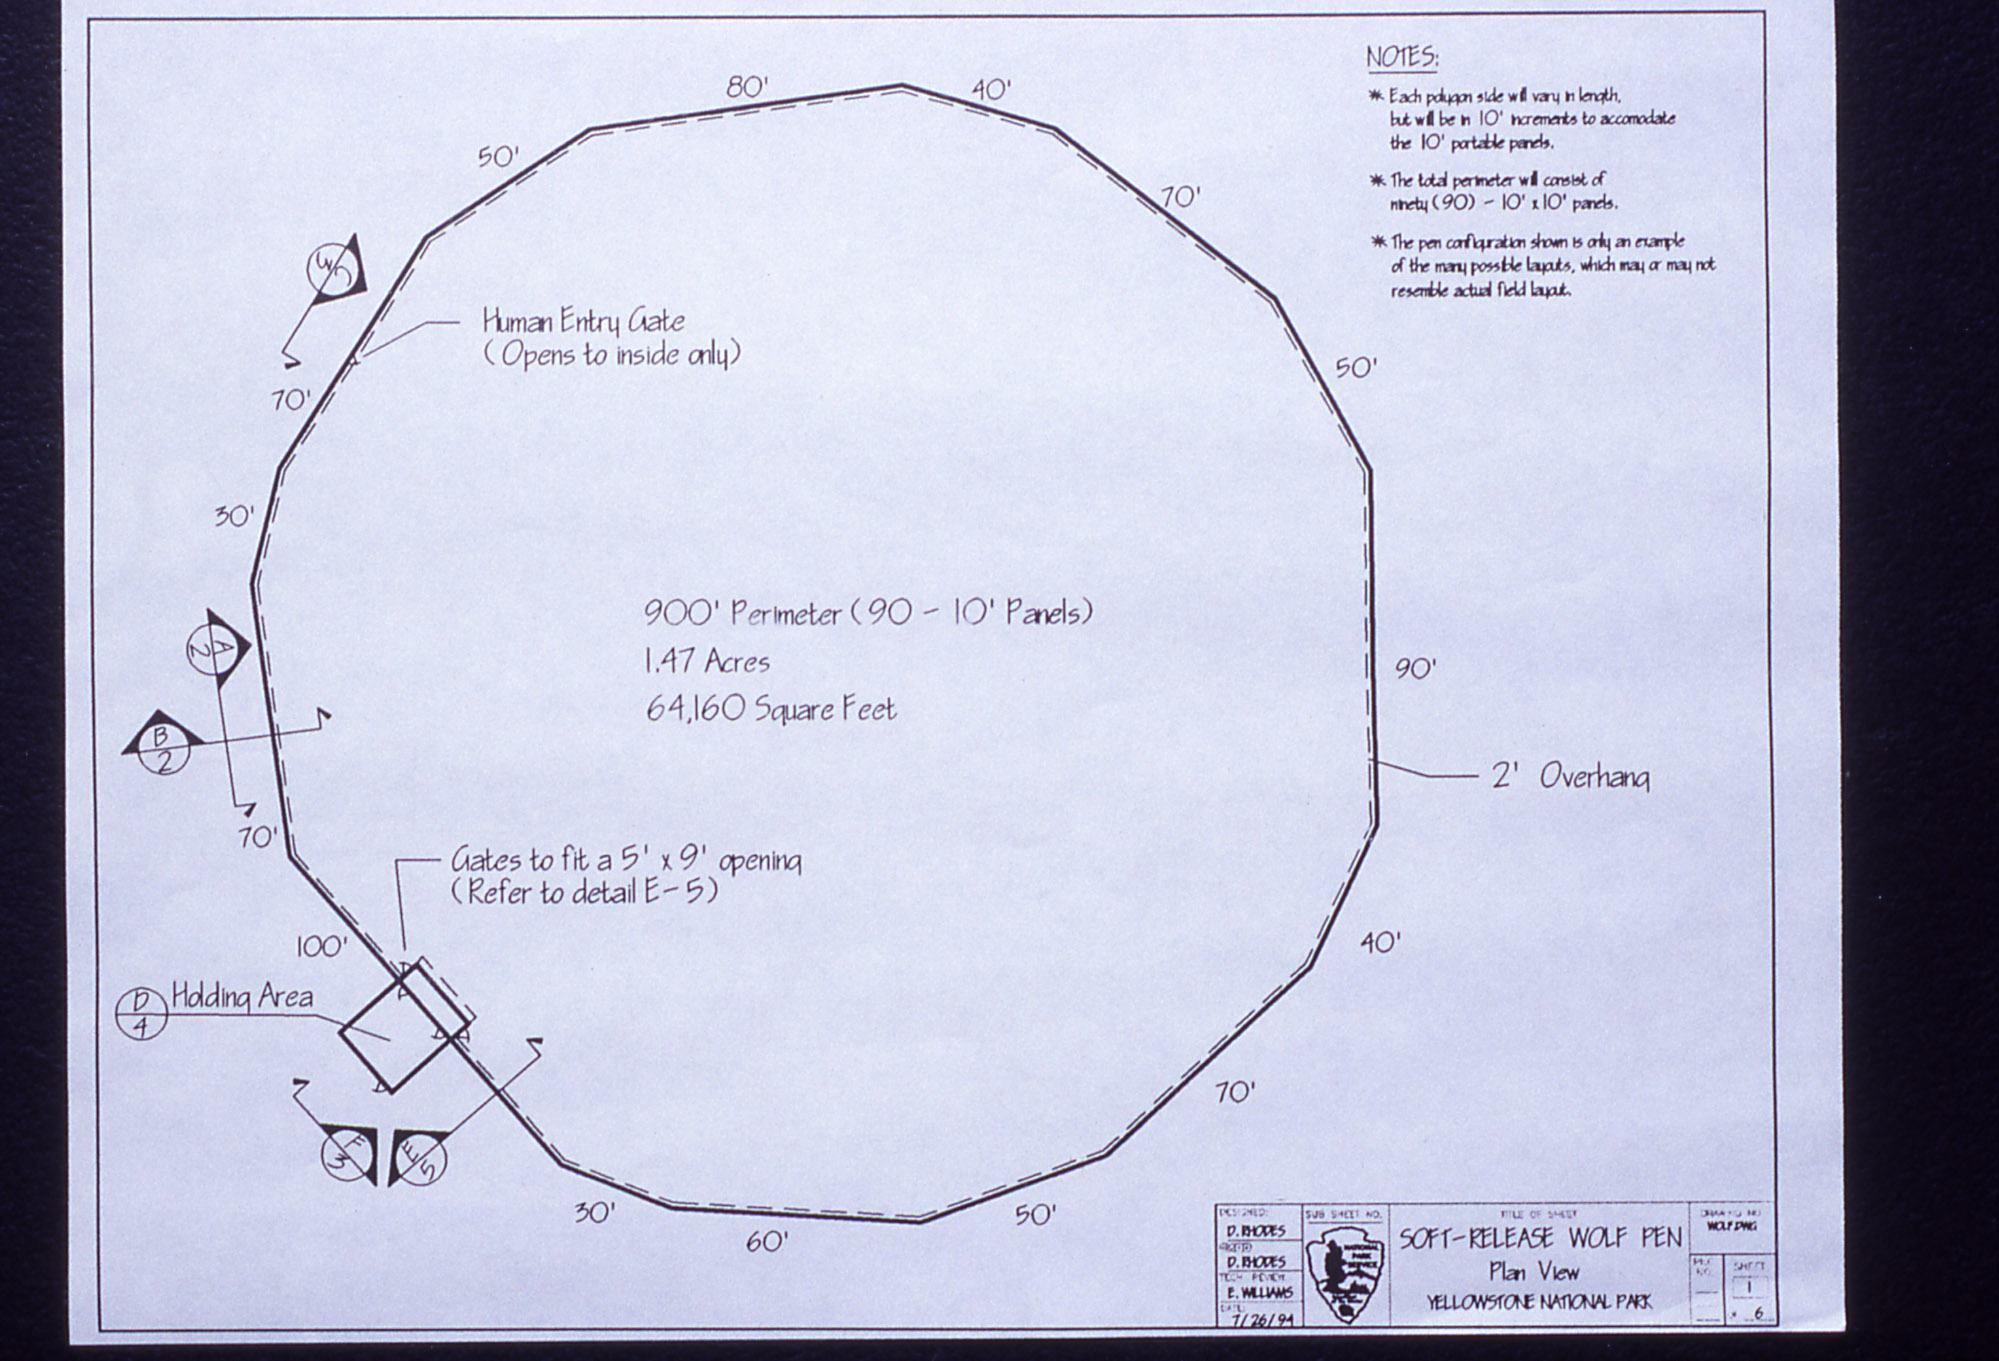 NOTES:
* Each polygon side will vary in length,
but will be in 10' increments to accomodate
the 10' portable panels.
* The total perimeter will consist of
ninety (90) - 10' x 10' panels.
* The pen configuration shown is only an example
of the many possible layouts, which may or may not
resemble actual field layout.
80'
40'
50'
70'
C
3
Human Entry Gate
(Opens to inside only)
50'
70'
30'
900' Perimeter (90 - 10' Panels)
1.47 Acres
64,160 Square Feet
A
2
90'
B
2
2' Overhang
70'
Gates to fit a 5' x 9' opening
(Refer to detail E-5)
100'
40'
D
4
Holding Area
70'
F
3
E
5
30'
60'
50'
DESIGNED:
D. RHODES
CADD
D. RHODES
TECH. REVIEW:
E. WILLIAMS
DATE:
7/26/94
SUB SHEET NO.
NATIONAL
PARK
SERVICE
TITLE OF SHEET
SOFT-RELEASE WOLF PEN
Plan View
YELLOWSTONE NATIONAL PARK
DRAWING NO.
WOLF.DWG
SHEET
1
6